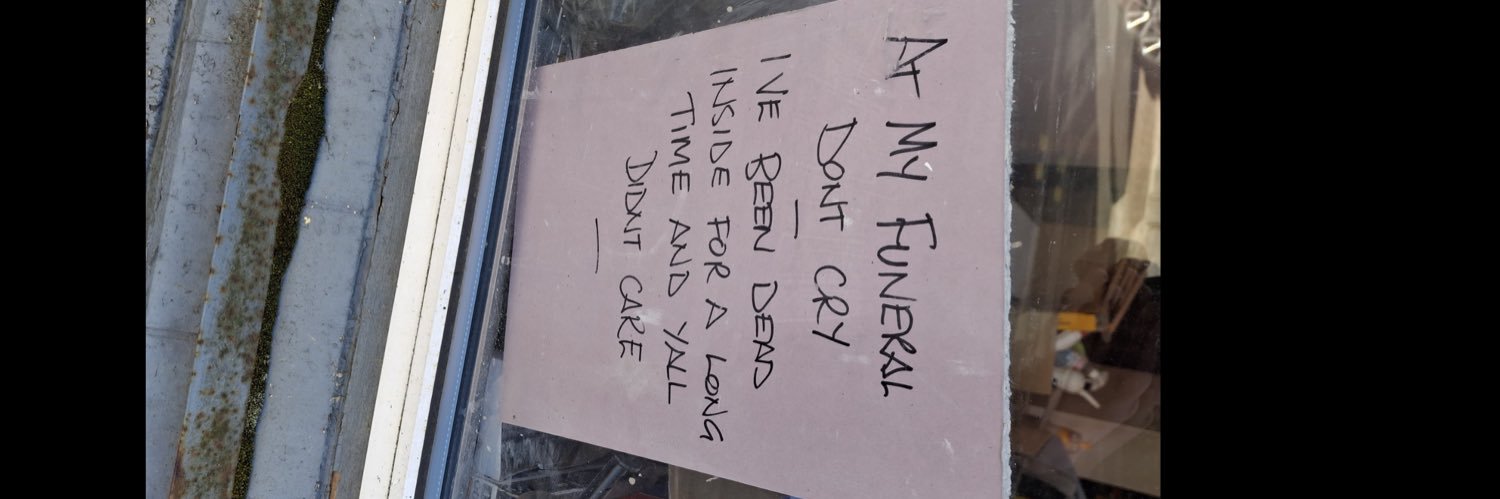 AT MY FUNERAL
DONT CRY
I'VE BEEN DEAD
INSIDE FOR A LONG
TIME AND YALL
DIDNT CARE